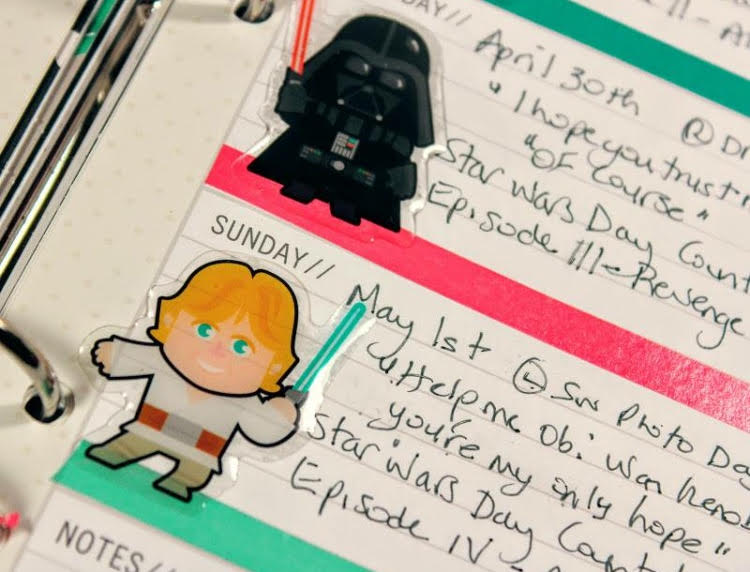 DAY//
April 30th
"I hope you trust
"Of Course"
Star Wars Day Count
Episode III - Revenge
SUNDAY//
May 1st SW Photo Day
"Help me Obi Wan Keno
you're my only hope"
Star Wars Day Count
Episode IV -
NOTES//